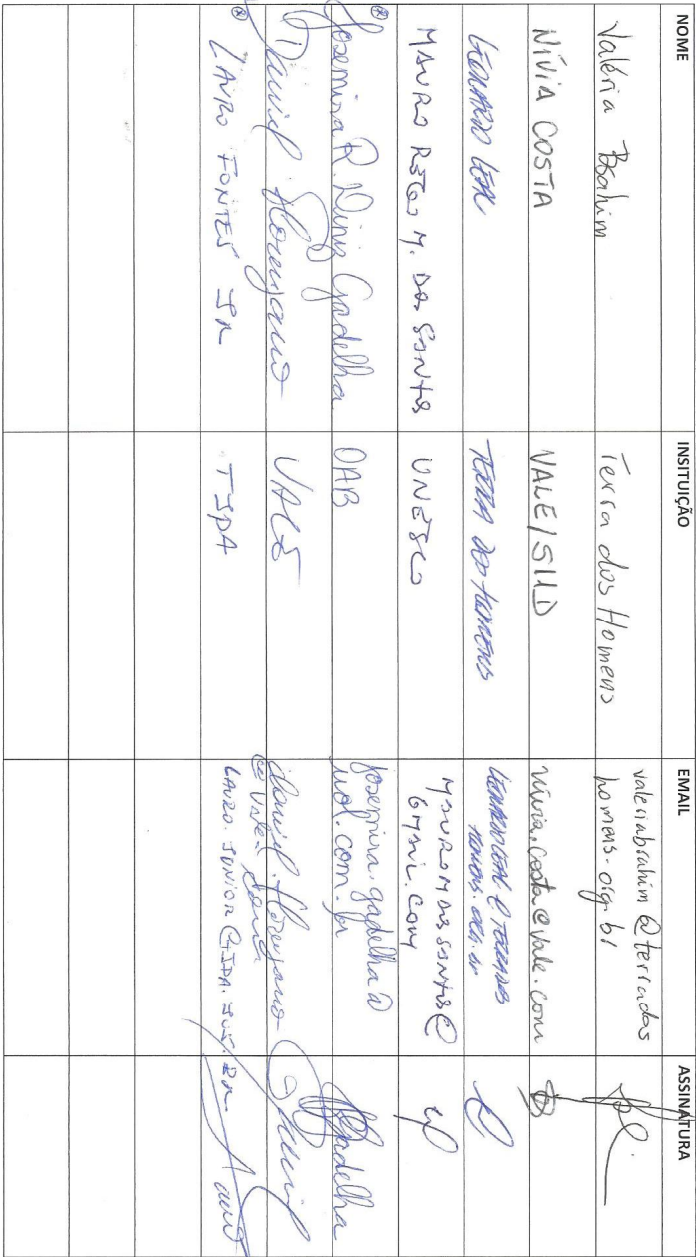 NOME INSITUIÇÃO EMAIL ASSINATURA
Valéria Brahim Terra dos Homens valeriabrahim@terrados
homens.org.br
NÍVIA COSTA VALE/SIID nivia.costa@vale.com
LEONARDO LEAL TERRA DOS HOMENS LEONARDOLEAL@TERRADOS
HOMENS.ORG.BR
MAURO M. DOS SANTOS UNESCO MAUROMDOSSANTOS@
GMAIL.COM
Josemira R. Diniz Gadelha OAB josemira.gadelha@
uol.com.br Gadelha
Daniel Florenzano VALE daniel.florenzano
@vale.com Daniel
LAURO FONTES JR TJPA LAURO.JUNIOR@TJPA.JUS.BR